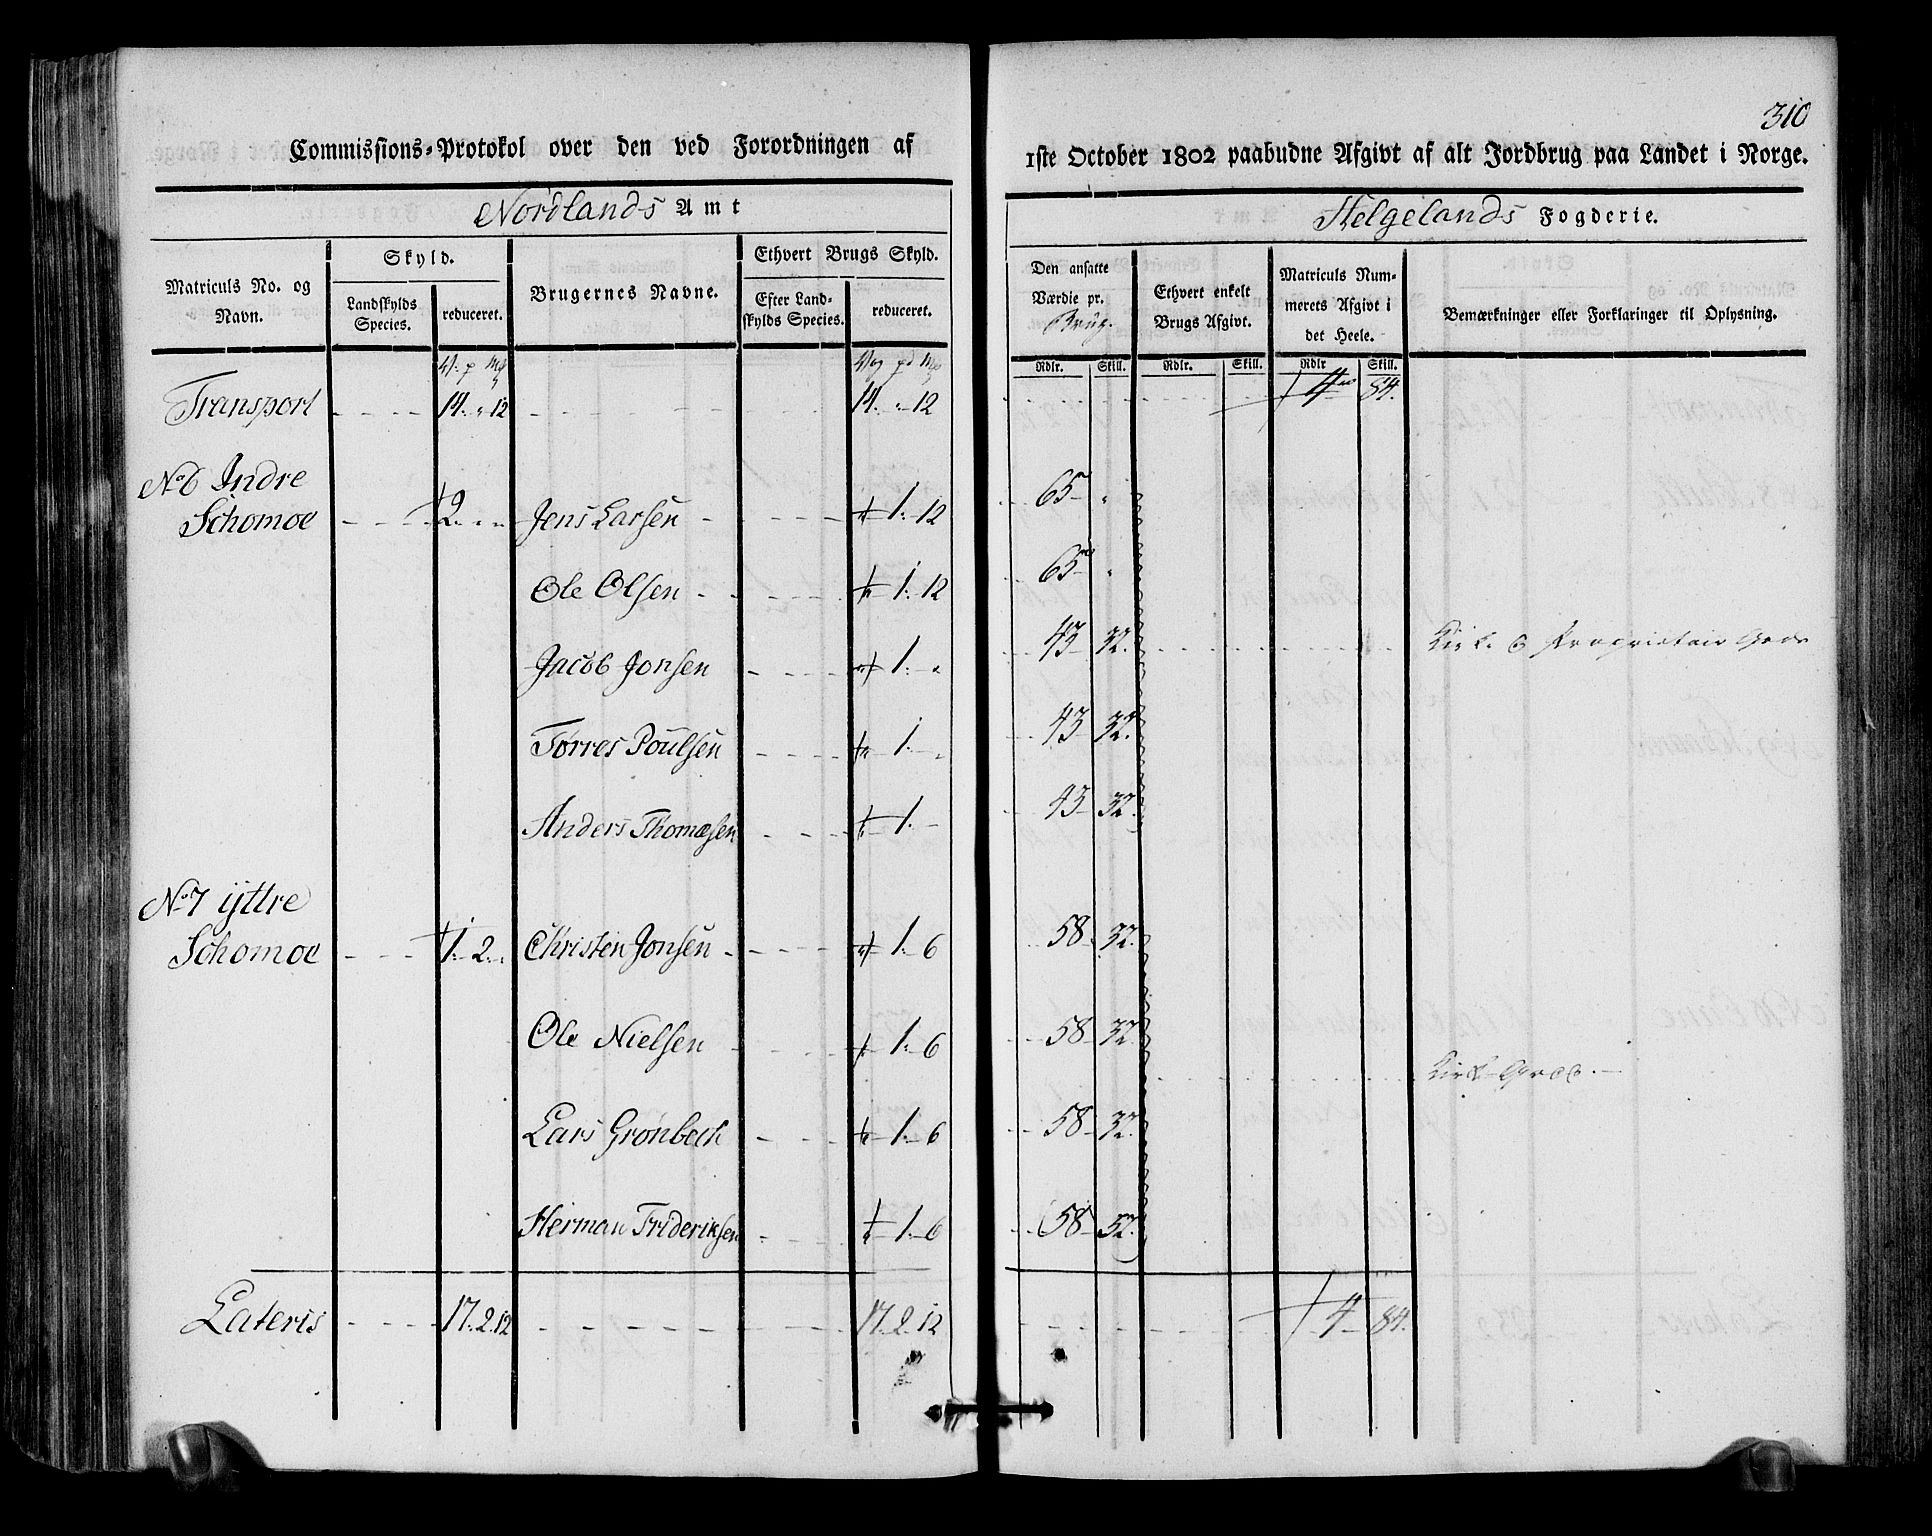 310
Commissions-Protokol over den ved Forordningen af
1ste October 1802 paabudne Afgivt af alt Jordbrug paa Landet i Norge.
Nordlands Amt
Helgelands Fogderie.
Matriculs No. og Navn.
Skyld.
Landskylds Species.
reduceret.
Brugernes Navne.
Ethvert Brugs Skyld.
Efter Landskylds Species.
reduceret.
Den ansatte Værdie pr. Brug.
Ethvert enkelt Brugs Afgivt.
Matriculs Nummerets Afgivt i det Heele.
Bemærkninger eller Forklaringer til Oplysning.
Rdlr. Skill. Rdlr. Skill. Rdlr Skill.
Transport 14. " 12 14. " 12 4 84.
No 6 Indre
Schomoe 2. " " Jens Larsen 1. 12 65 "
Ole Olsen 1. 12 65 "
Jacob Jonsen 1. " 43 32. Kirke & Proprietair Gods
Tørres Poulsen 1. " 43 32.
Anders Thomæsen 1. - 43 32.
No 7 ijttre
Schomoe 1. 2. " Christen Jonsen 1. 6 58 32.
Ole Nielsen 1. 6 58 32.
Kirke Gods.
Lars Grønbech 1. 6 58 32.
Herman Frideriksen 1. 6 58 32.
Lateris 17. 2. 12 17. 2. 12 4 84.